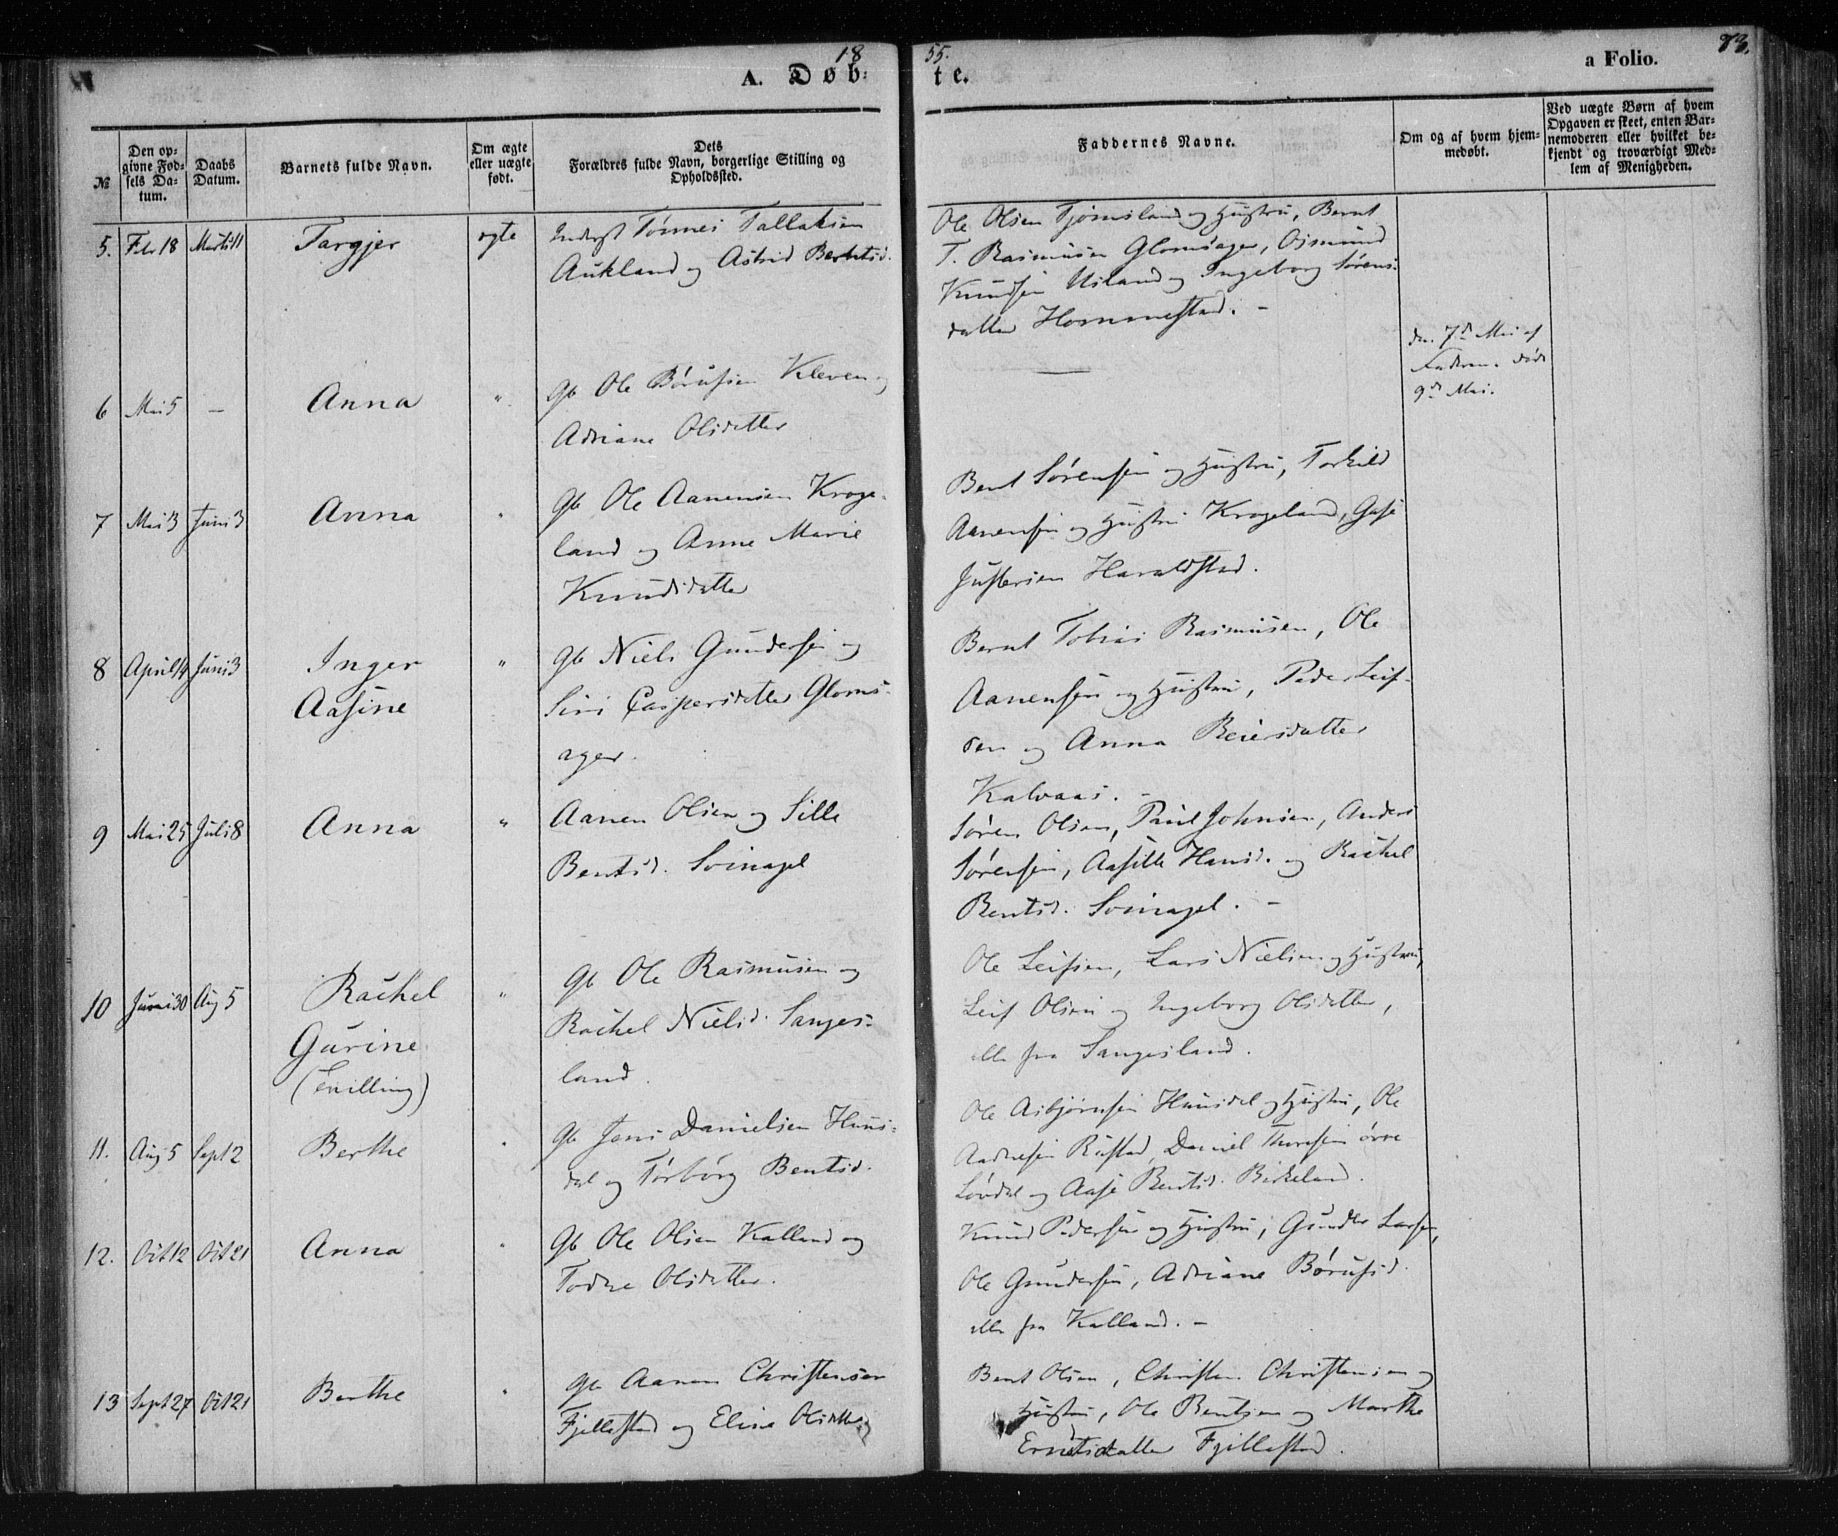 1855.
73.
A. Døbte.
a Folio.
№
Den opgivne Fødsels Datum.
Daabs Datum.
Barnets fulde Navn.
Om ægte eller uægte født.
Dets Forældres fulde Navn, borgerlige Stilling og Opholdssted.
Faddernes Navne.
Om og af hvem hjemmedøbt.
Ved uægte Børn af hvem Opgaven er skeet, enten Barnemoderen eller hvilket bekjendt og troværdigt Medlem af Menigheden.
5. Febr 18 Marts 11 Targjer ægte
Inderst Tønnes Tallaksen
Aukland og Astrid Berntsd.
Ole Olsen Tjømsland og Hustru, Bernt
T. Rasmusen Glomsager, Osmund
Knudsen Usland og Ingeborg Sørens-
datter Hommestad. -
6 Mai 5 — Anna "
Gb Ole Børufsen Kleven og
Adriane Olsdatter
—
den 7d Mai af
Faderen. død
9d Mai.
7 Mai 3 Juni 3 Anna "
Gb Ole Aanensen Kroge-
land og Anne Marie
Knudsdatter
Bent Sørensen og Hustru, Torkild
Aanensen og Hustru Krogeland, Gase
Justersen Haraldstad.
8 April 14 Juni 3 Inger "
Aasine
Gb Niels Gundersen og
Siri Caspersdatter Gloms-
ager.
Bernt Tobias Rasmusen, Ole
Aanensen og Hustru, Peder Leif-
sen og Anna Reiersdatter
Kalvaas. -
9 Mai 25 Juli 8 Anna "
Aanen Olsen og Sille
Bentsd. Svinagel
Søren Olsen, Paul Johnsen, Anders
Sørensen, Aasille Hansd. og Rachel
Bentsd. Svinagel. -
10 Juni 30 Aug 5 Rachel "
Gurine
(Tvilling)
Gb Ole Rasmusen og
Rachel Nielsd. Sanges-
land.
Ole Leifsen, Lars Nielsen og Hustru,
Leif Olsen og Ingeborg Olsdatter,
alle fra Sangesland.
11. Aug 5 Sept 2 Berthe "
Gb Jens Danielsen Huns-
dal og Tørborg Bentsd.
Ole Asbjørnsen Hunsdal og Hustru, Ole
Aadnesen Rustad, Daniel Thoresen øvre
Løvdal og Aase Bentsd. Birkeland.
12. Oct 12 Oct 21 Anna "
Gb Ole Olsen Kalland og
Todne Olsdatter.
Knud Pedersen og Hustru, Gunder Larsen,
Ole Gundersen, Adriane Børufsd.
alle fra Kalland. -
13 Sept 27 Oct 21 Berthe "
Gb Aanen Christensen
Fjellestad og Eline Olsdatter
Bent Olsen, Christen Christensen og
Hustru, Ole Bentsen og Marthe
Erntsdatter Fjellestad.